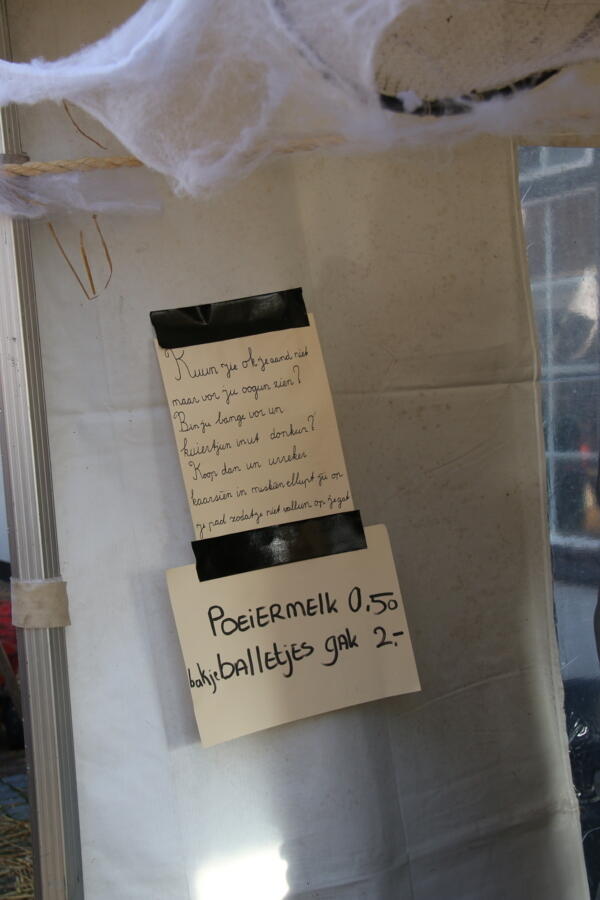 Kuun zie ok je aand niet
maar vor ju oogun zien?
Bin ju bange vor un
kuiertjun in ut donkur?
Koop dan un urreker
kaarsien in muskien ellupt zu op
je pad zodatje niet vallun op je gat
POEIERMELK 0,50
bakje BALLETJES GAK 2,-